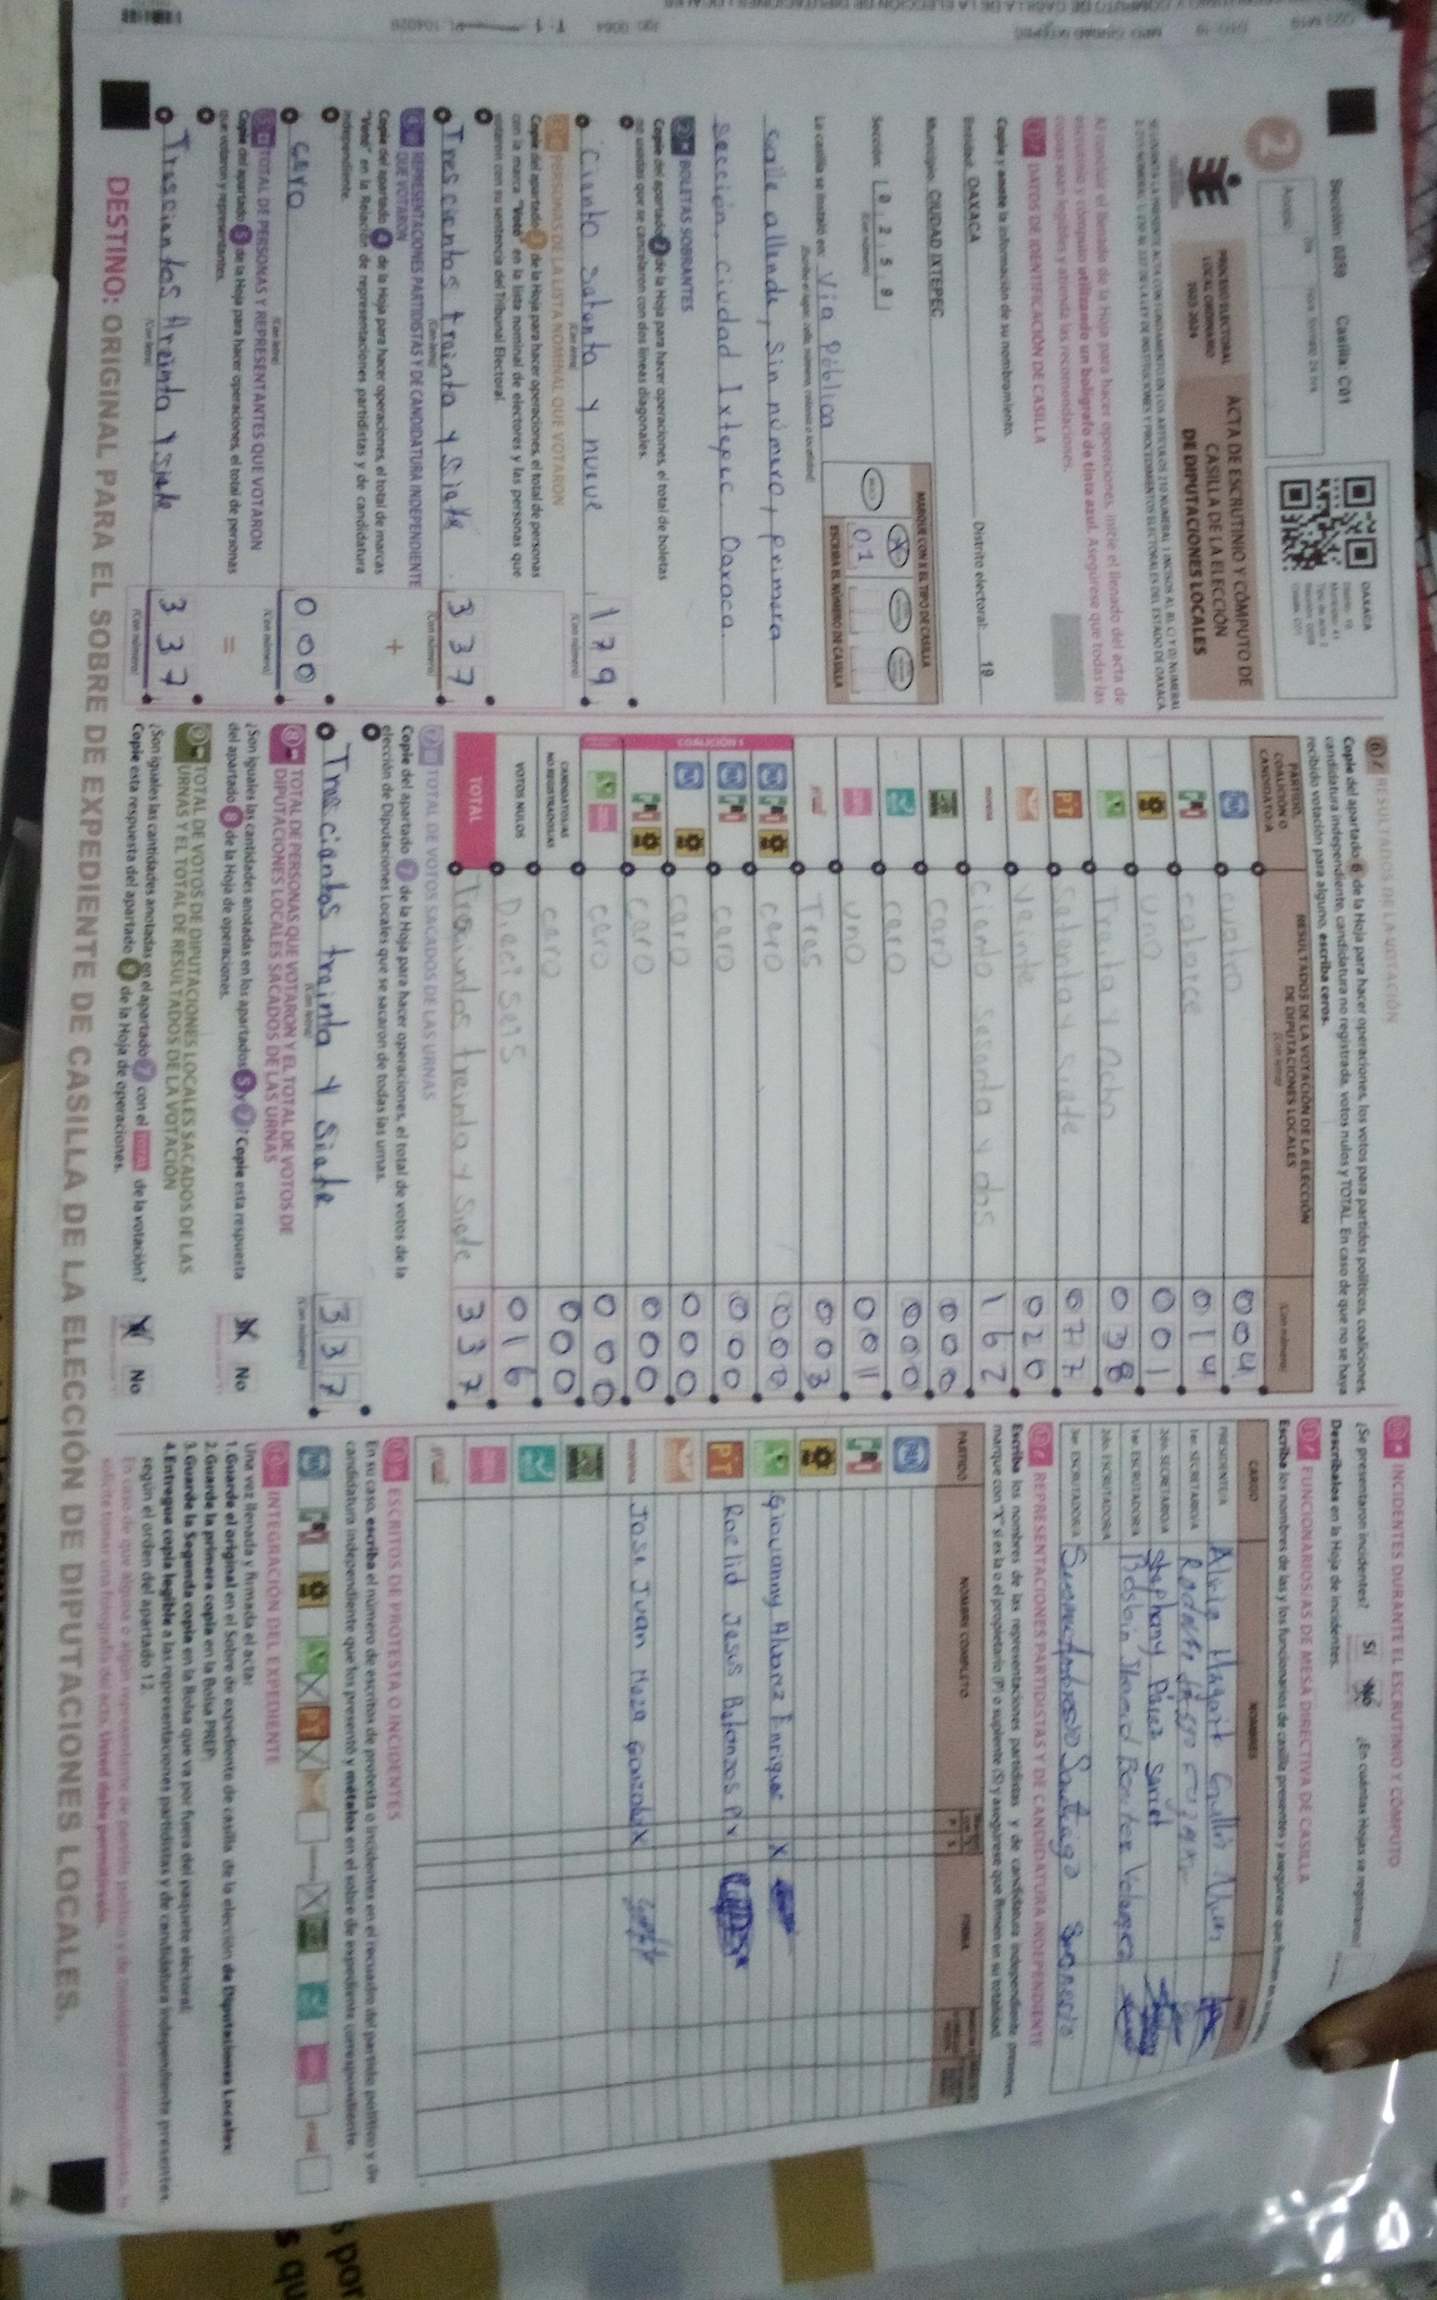 Sección: 0259 Casilla: C01
OAXACA
2
PROCESO ELECTORAL
LOCAL ORDINARIO
2023-2024
ACTA DE ESCRUTINIO Y CÓMPUTO DE
CASILLA DE LA ELECCIÓN
DE DIPUTACIONES LOCALES
Al concluir el llenado de la Hoja para hacer operaciones, inicie el llenado del acta de
escrutinio y cómputo utilizando un bolígrafo de tinta azul. Asegúrese que todas las
copias sean legibles y atienda las recomendaciones.
1 DATOS DE IDENTIFICACIÓN DE CASILLA
Copie y anote la información de su nombramiento.
Entidad: OAXACA Distrito electoral: 19
Municipio: CIUDAD IXTEPEC
Sección: 0 2 5 9
(Con número)
MARQUE CON X EL TIPO DE CASILLA
0 1
ESCRIBA EL NÚMERO DE CASILLA
La casilla se instaló en: Vía Pública
calle allende, Sin número, primera
Sección, Ciudad Ixtepec Oaxaca
2 BOLETAS SOBRANTES
Copie del apartado 2 de la Hoja para hacer operaciones, el total de boletas
no usadas que se cancelaron con dos líneas diagonales.
Ciento setenta y nueve 179
(Con letra) (Con número)
3 PERSONAS DE LA LISTA NOMINAL QUE VOTARON
Copie del apartado 3 de la Hoja para hacer operaciones, el total de personas
con la marca "Votó" en la lista nominal de electores y las personas que
votaron con su sentencia del Tribunal Electoral.
Trescientos treinta y Siete 337
(Con letra) (Con número)
4 REPRESENTACIONES PARTIDISTAS Y DE CANDIDATURA INDEPENDIENTE
QUE VOTARON
Copie del apartado 4 de la Hoja para hacer operaciones, el total de marcas
"Votó" en la Relación de representaciones partidistas y de candidatura
independiente.
+
cero 000
(Con letra) (Con número)
5 TOTAL DE PERSONAS Y REPRESENTANTES QUE VOTARON
Copie del apartado 5 de la Hoja para hacer operaciones, el total de personas
que votaron y representantes.
=
Trescientos treinta y siete 337
(Con letra) (Con número)
6 RESULTADOS DE LA VOTACIÓN
Copie del apartado 6 de la Hoja para hacer operaciones, los votos para partidos políticos, coaliciones,
candidatura independiente, candidatura no registrada, votos nulos y TOTAL. En caso de que no se haya
recibido votación para alguno, escriba ceros.
PARTIDO,
COALICIÓN O
CANDIDATO/A
RESULTADOS DE LA VOTACIÓN DE LA ELECCIÓN
DE DIPUTACIONES LOCALES
(Con letra)
(Con número)
cuatro 004
catorce 014
uno 001
Treita y Ocho 038
PT Setenta y Siete 077
Veinte 020
morena Ciento sesenta y dos 162
cero 000
cero 000
uno 001
Tres 003
COALICIÓN 1
cero 000
cero 000
cero 000
cero 000
cero 000
CANDIDATOS/AS
NO REGISTRADOS/AS
cero 000
VOTOS NULOS Dieci seis 016
TOTAL Trecientos treinta y Siete 337
7 TOTAL DE VOTOS SACADOS DE LAS URNAS
Copie del apartado 7 de la Hoja para hacer operaciones, el total de votos de la
elección de Diputaciones Locales que se sacaron de todas las urnas.
Trescientos treinta y Siete 337
(Con letra) (Con número)
8 TOTAL DE PERSONAS QUE VOTARON Y EL TOTAL DE VOTOS DE
DIPUTACIONES LOCALES SACADOS DE LAS URNAS
¿Son iguales las cantidades anotadas en los apartados 5 y 7? Copie esta respuesta
del apartado 8 de la Hoja de operaciones.
No
9 TOTAL DE VOTOS DE DIPUTACIONES LOCALES SACADOS DE LAS
URNAS Y EL TOTAL DE RESULTADOS DE LA VOTACIÓN
¿Son iguales las cantidades anotadas en el apartado 7 con el TOTAL de la votación?
Copie esta respuesta del apartado 9 de la Hoja de operaciones.
No
INCIDENTES DURANTE EL ESCRUTINIO Y CÓMPUTO
¿Se presentaron incidentes? Sí No ¿En cuántas Hojas se registraron?
Descríbalos en la Hoja de incidentes.
FUNCIONARIOS/AS DE MESA DIRECTIVA DE CASILLA
Escriba los nombres de las y los funcionarios de casilla presentes y asegúrese que firmen
CARGO NOMBRES
PRESIDENTE/A
1er. SECRETARIO/A
2do. SECRETARIO/A Stephany Pérez
1er. ESCRUTADOR/A
2do. ESCRUTADOR/A
3er. ESCRUTADOR/A Santiago
REPRESENTACIONES PARTIDISTAS Y DE CANDIDATURA INDEPENDIENTE
Escriba los nombres de las representaciones partidistas y de candidatura independiente presentes,
marque con "X" si es la o el propietario (P) o suplente (S) y asegúrese que firmen en su totalidad.
PARTIDO NOMBRE COMPLETO FIRMA
PAN
Giovanny Alvarez Enriquez X
PT Roelid Jesus X
morena Jose Juan Meza Gonzalez X
ESCRITOS DE PROTESTA O INCIDENTES
En su caso, escriba el número de escritos de protesta o incidentes en el recuadro del partido político y de
candidatura independiente que los presentó y métalos en el sobre de expediente correspondiente.
PT
INTEGRACIÓN DEL EXPEDIENTE
Una vez llenada y firmada el acta:
1. Guarde el original en el Sobre de expediente de casilla de la elección de Diputaciones Locales;
2. Guarde la primera copia en la Bolsa PREP;
3. Guarde la Segunda copia en la Bolsa que va por fuera del paquete electoral;
4. Entregue copia legible a las representaciones partidistas y de candidatura independiente presentes,
según el orden del apartado 12.
DESTINO: ORIGINAL PARA EL SOBRE DE EXPEDIENTE DE CASILLA DE LA ELECCIÓN DE DIPUTACIONES LOCALES.
s por
s qu